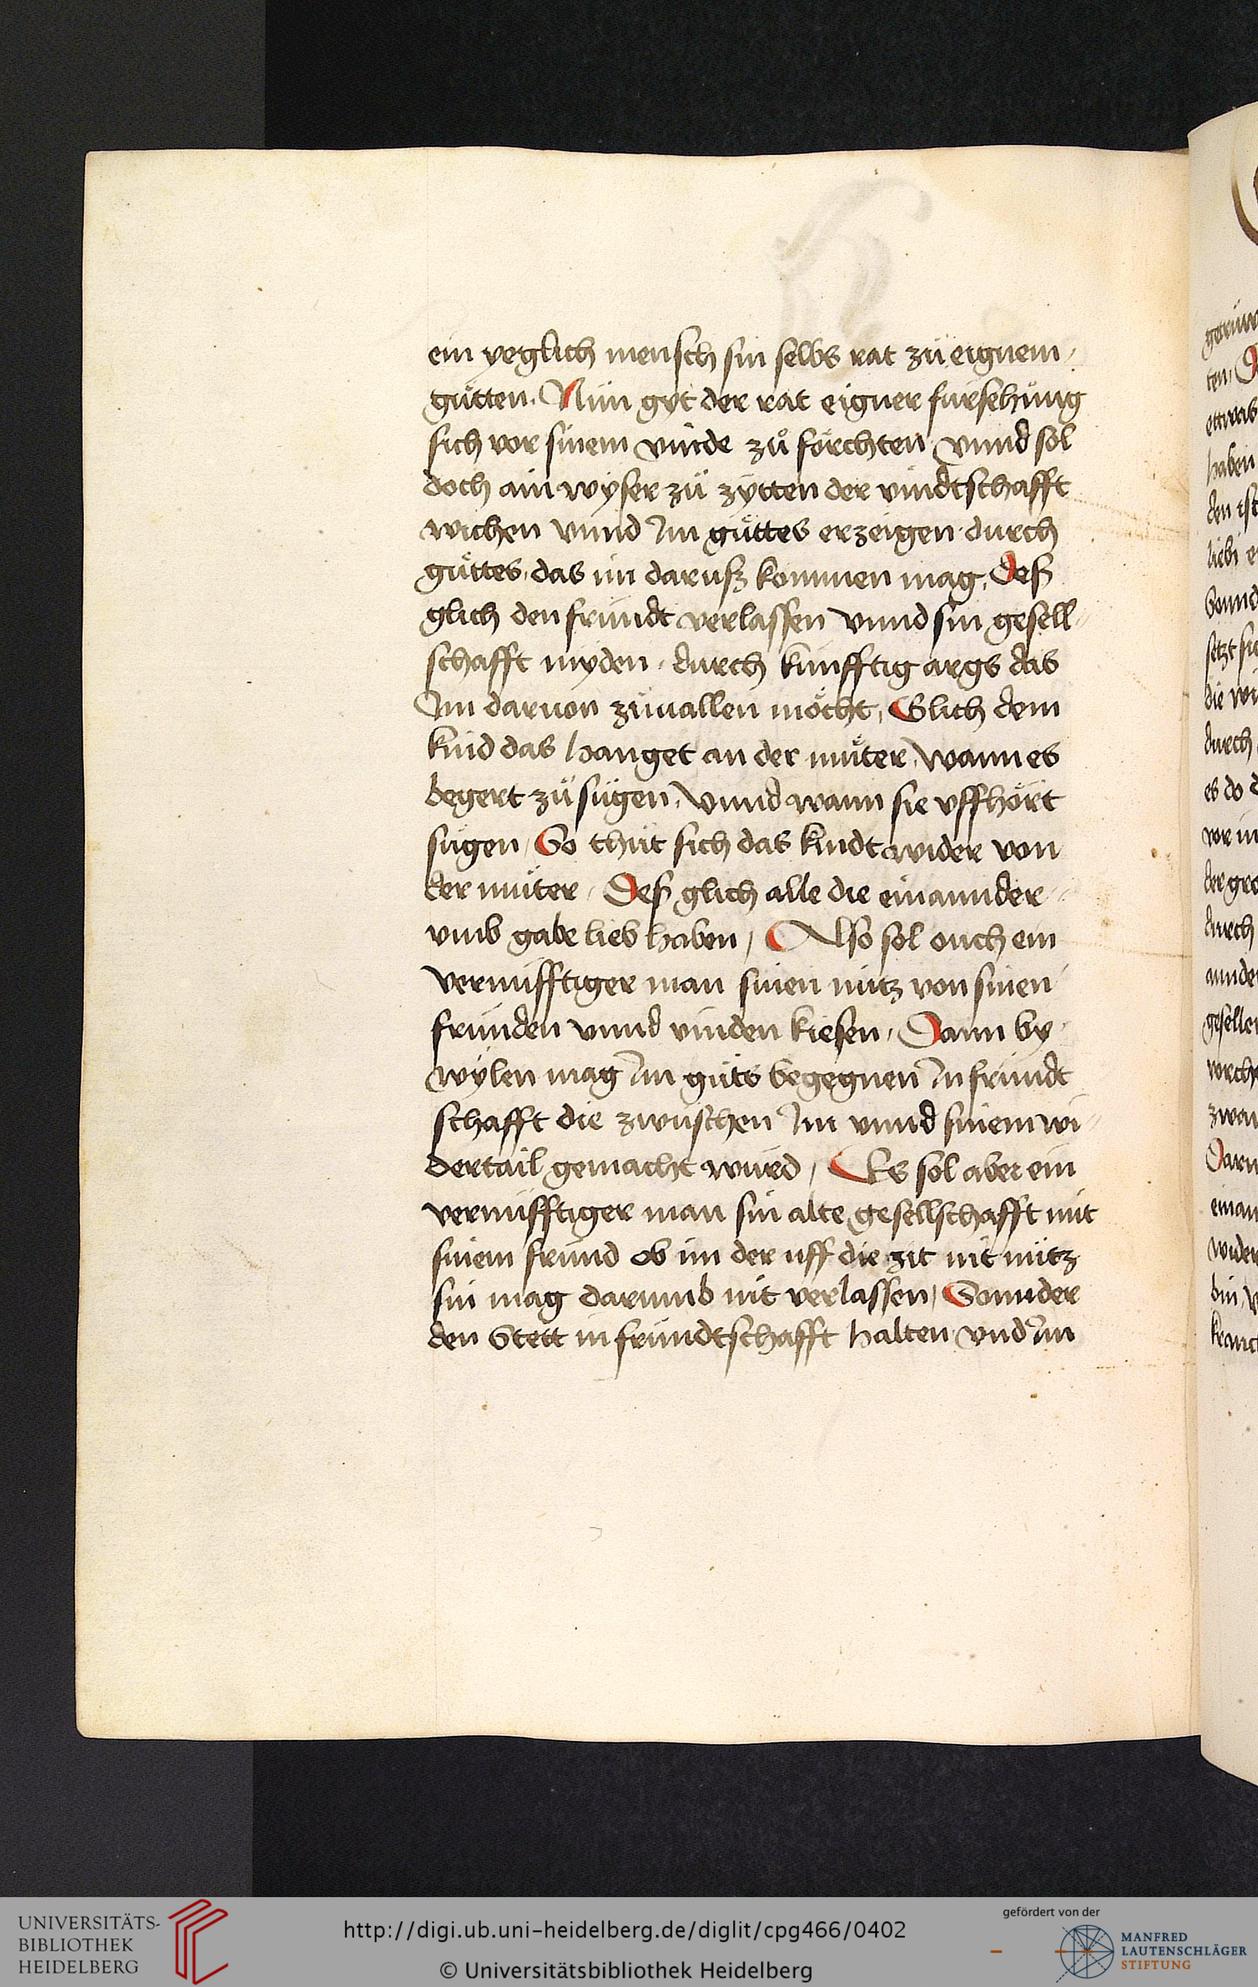 ein yeglich mensch sin selbs rat zü eignem
gütten. Nün gyt der rat eigner fürsehüng
sich vor sinem vinde zů förchten vnnd sol
doch ain wyser zü zytten der vindtschafft
wichen vnnd Im gůttes erzeigen durch
gůttes das im daruß kommen mag. Deß
glich den fründt verlassen vnnd sin gesell
schafft myden durch künfftig args das
Im daruon züuallen möcht, Glich dem
kind das hanget an der můter, wann es
begert zů sügen, vnnd wann sie vffhört
sügen, So thüt sich das kindt wider von
der müter, Deß glich alle die einannder
vmb gabe lieb haben, Also sol ouch ein
vernüfftiger man sinen nütz von sinen
fründen vnnd vinden kiesen, Dann by
wylen mag Im güts begegnen In fründt
schafft die zwüschen Im vnnd sinem wi
dertail gemacht würd, Es sol aber ein
vernüfftiger man sin alte gesellschafft mit
sinem fründ ob im der uff die zit nit nütz
sin mag darumb nit verlassen, Sonnder
den Stett in fründtschafft halten vnd Im
etwas
haben
den ist
liebi
Sonnd
durch
es do
durch
UNIVERSITÄTS-
BIBLIOTHEK
HEIDELBERG
http://digi.ub.uni-heidelberg.de/diglit/cpg466/0402
© Universitätsbibliothek Heidelberg
gefördert von der
MANFRED
LAUTENSCHLÄGER
STIFTUNG